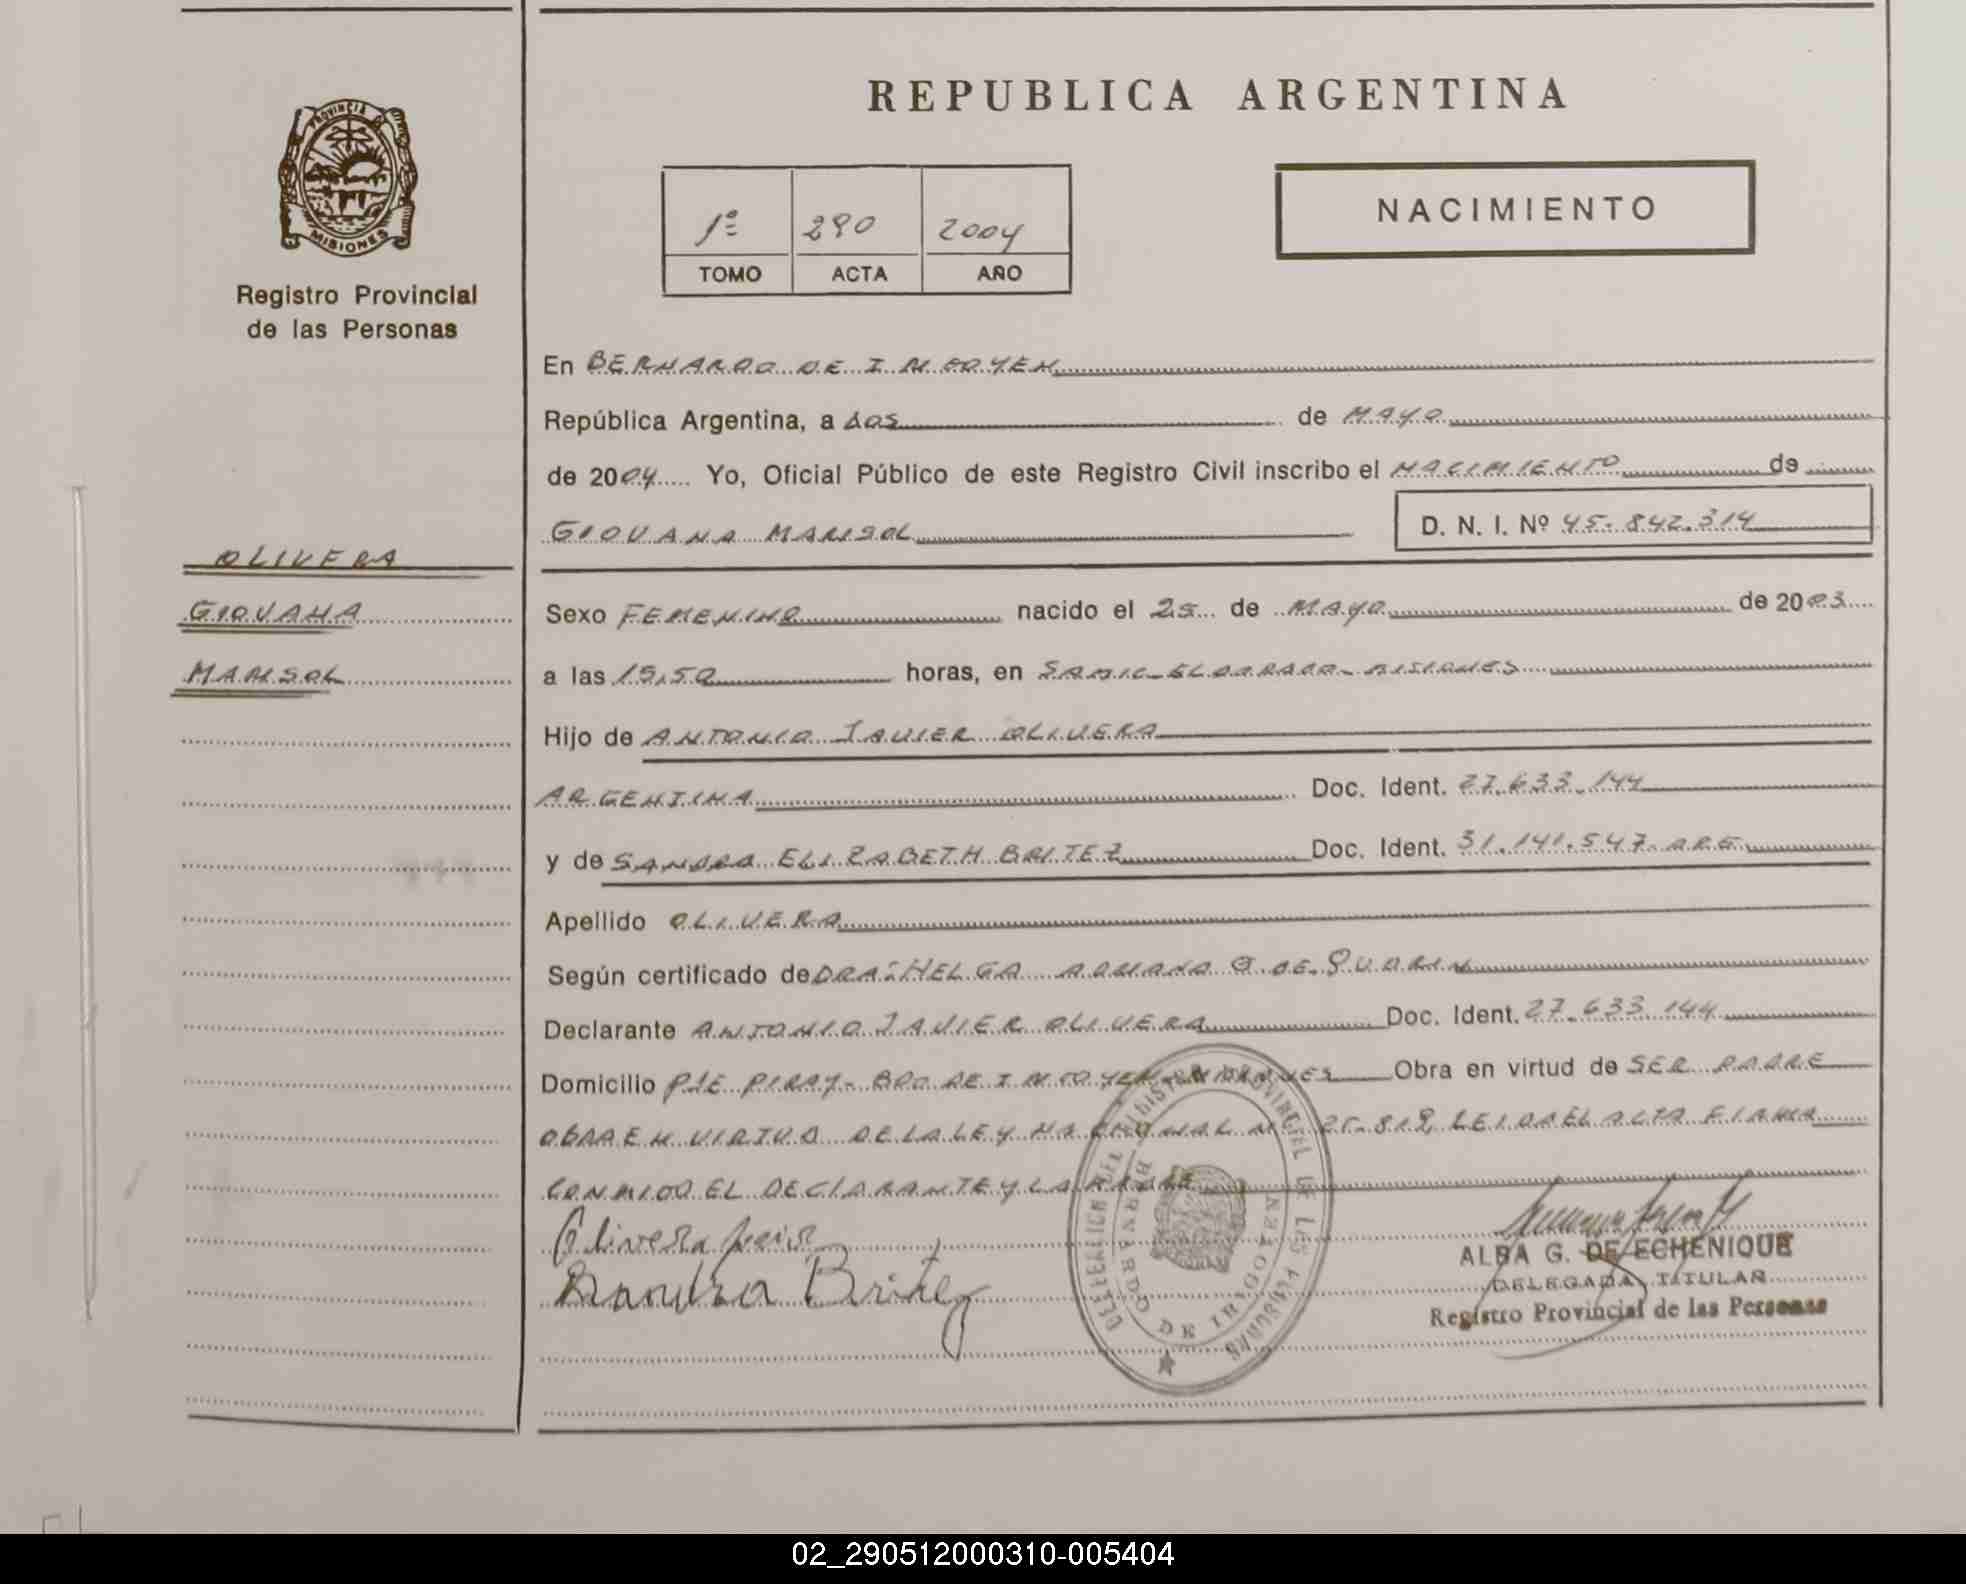 REPUBLICA ARGENTINA
PROVINCIA DE
MISIONES
Registro Provincial
de las Personas
1º 290 2004
TOMO ACTA AÑO
NACIMIENTO
En BERNARDO DE IRIGOYEN
República Argentina, a dos de MAYO
de 2004 Yo, Oficial Público de este Registro Civil inscribo el NACIMIENTO de
GIOVANA MARISOL D. N. I. Nº 45.842.314
OLIVERA
GIOVANA
MARISOL
Sexo FEMENINO nacido el 25 de MAYO de 2003
a las 15,50 horas, en SAMIC-ELDORADO-MISIONES
Hijo de ANTONIO JAVIER OLIVERA
ARGENTINA Doc. Ident. 27.633.144
y de SANDRA ELIZABETH BRITEZ Doc. Ident. 31.141.547 ARG
Apellido OLIVERA
Según certificado de DRA: HELGA DE
Declarante ANTONIO JAVIER OLIVERA Doc. Ident. 27.633.144
Domicilio PTE PIRAY-BDO DE IRIGOYEN-MISIONES Obra en virtud de SER PADRE
OBRA EN VIRTUD DE LA LEY NACIONAL Nº 25.819, LEIDA EL ACTA FIRMA
CONMIGO EL DECLARANTE Y LA MADRE
Olivera Javier
Sandra Britez
DELEGACION DEL REGISTRO PROVINCIAL DE LAS PERSONAS
BERNARDO DE IRIGOYEN
ALBA G. DE ECHENIQUE
DELEGADA TITULAR
Registro Provincial de las Personas
02_290512000310-005404